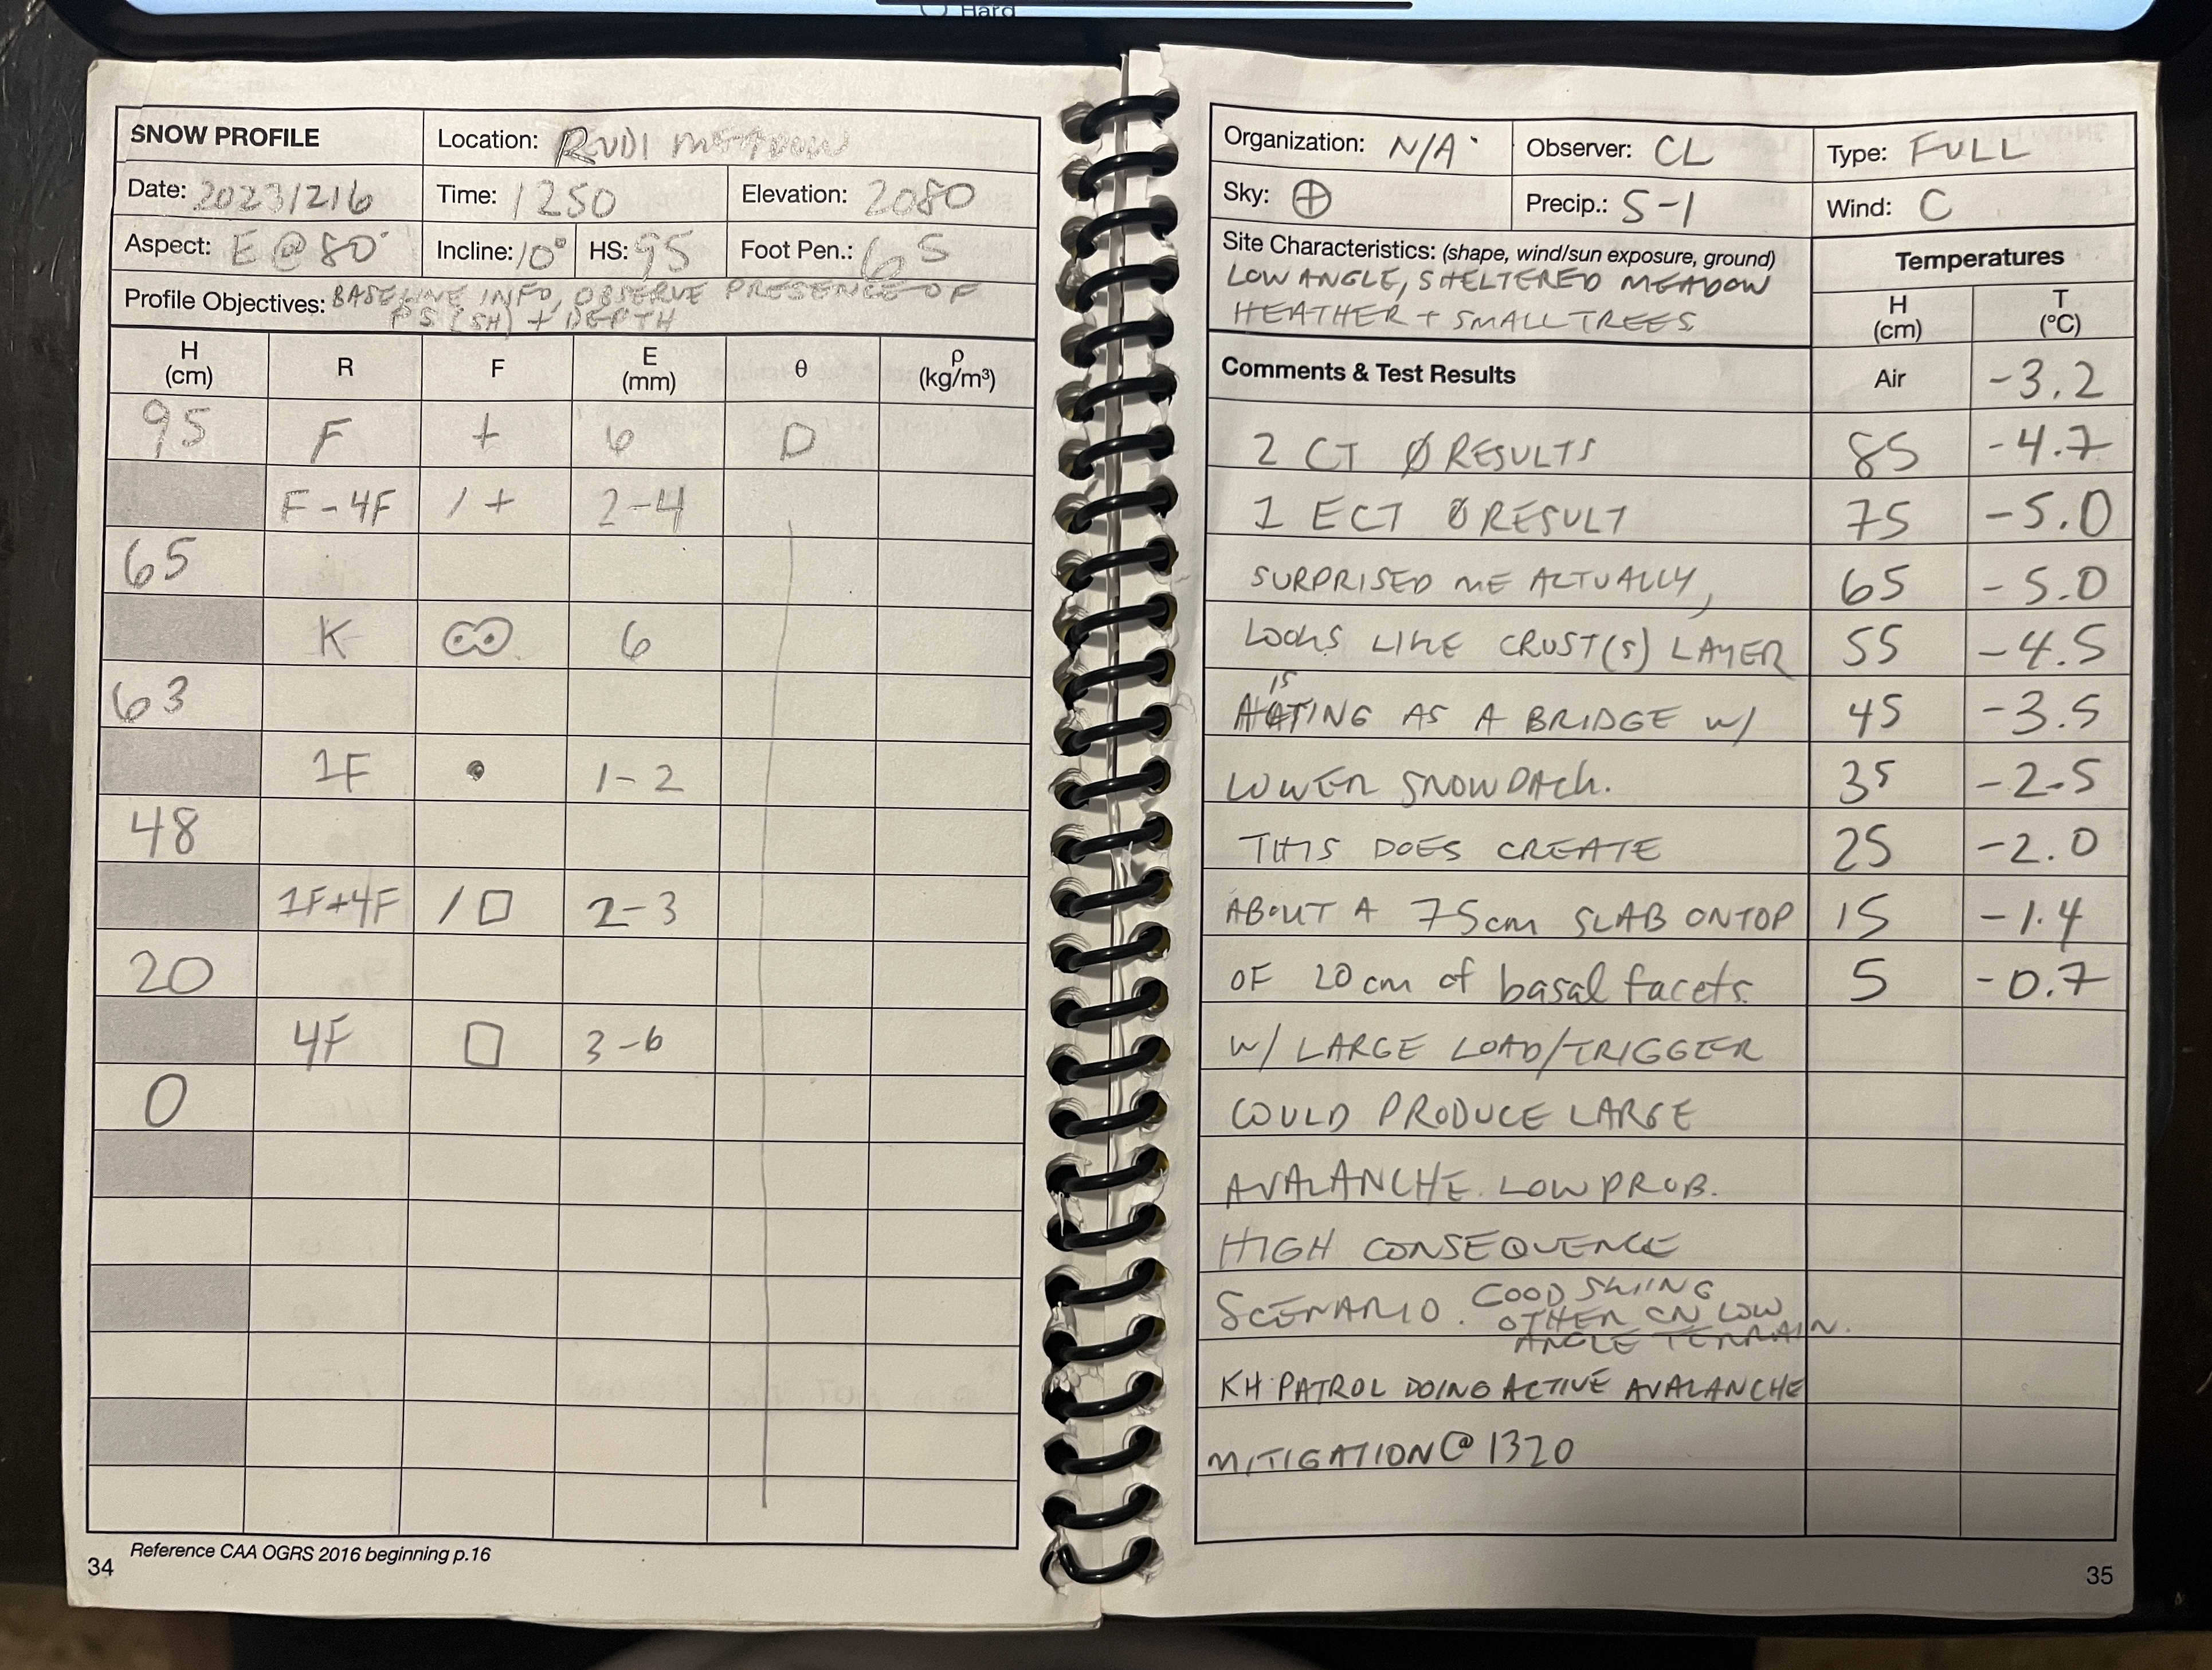 Hard
SNOW PROFILE Location: RUDI MEADOW
Date: 20231216 Time: 1250 Elevation: 2080
Aspect: E @ 80° Incline: 10° HS: 95 Foot Pen.: 65
Profile Objectives: BASELINE INFO, OBSERVE PRESENCE OF
PS (SH) + DEPTH
H (cm) R F E (mm) θ ρ (kg/m³)
95 F + 6 D
F-4F / + 2-4
65
K ∞ 6
63
1F • 1-2
48
1F+4F / □ 2-3
20
4F □ 3-6
0
Reference CAA OGRS 2016 beginning p.16
34
Organization: N/A Observer: CL Type: FULL
Sky: ⊕ Precip.: S-1 Wind: C
Site Characteristics: (shape, wind/sun exposure, ground)
LOW ANGLE, SHELTERED MEADOW
HEATHER + SMALL TREES
Temperatures
H (cm) T (°C)
Comments & Test Results Air -3.2
2 CT Ø RESULTS 85 -4.7
1 ECT Ø RESULT 75 -5.0
SURPRISED ME ACTUALLY, 65 -5.0
LOOKS LIKE CRUST(S) LAYER 55 -4.5
IS
ACTING AS A BRIDGE W/ 45 -3.5
LOWER SNOWPACK. 35 -2.5
THIS DOES CREATE 25 -2.0
ABOUT A 75cm SLAB ONTOP 15 -1.4
OF 20 cm of basal facets. 5 -0.7
W/ LARGE LOAD/TRIGGER
COULD PRODUCE LARGE
AVALANCHE. LOW PROB.
HIGH CONSEQUENCE
SCENARIO. GOOD SKIING
OTHER ON LOW
ANGLE TERRAIN.
KH PATROL DOING ACTIVE AVALANCHE
MITIGATION @ 1320
35